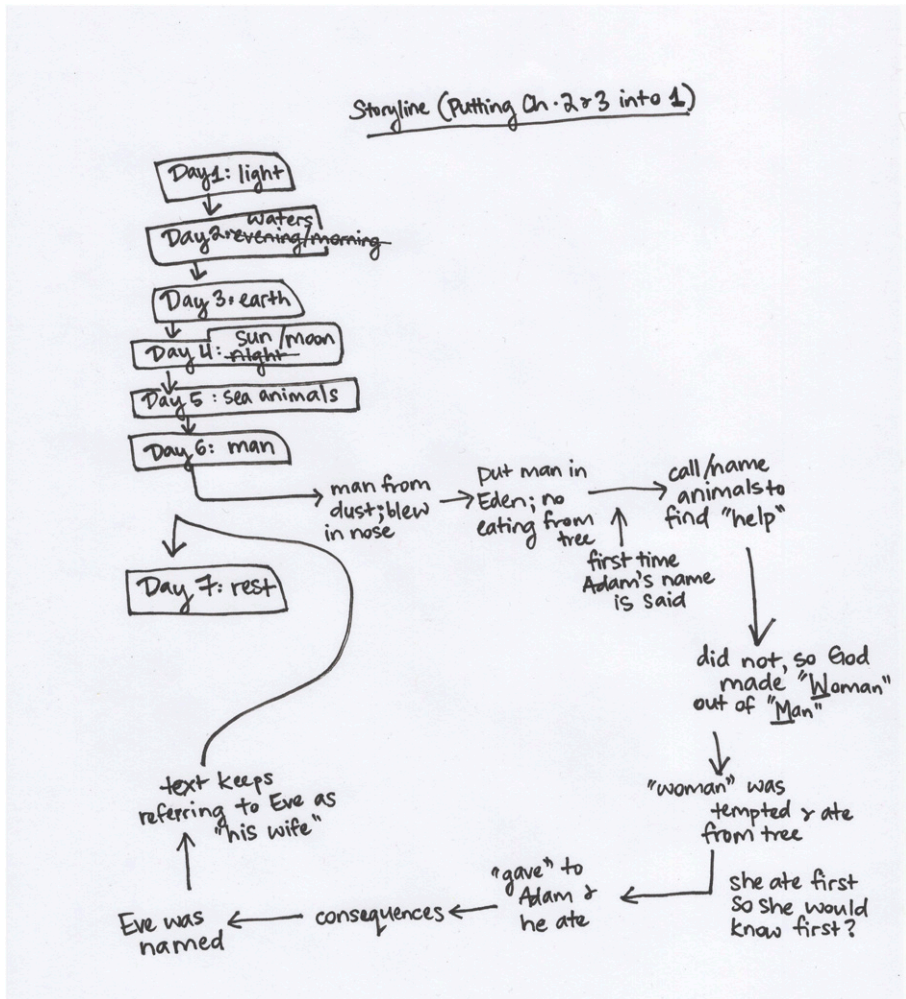 Storyline (Putting Ch. 2 & 3 into 1)
Day 1: light
waters
Day 2: evening/morning
Day 3: earth
sun/moon
Day 4: night
Day 5: sea animals
Day 6: man
man from
dust; blew
in nose
put man in
Eden; no
eating from
tree
first time
Adam's name
is said
call/name
animals to
find "help"
Day 7: rest
did not, so God
made "Woman"
out of "Man"
"woman" was
tempted & ate
from tree
she ate first
so she would
know first?
"gave" to
Adam &
he ate
consequences
Eve was
named
text keeps
referring to Eve as
"his wife"